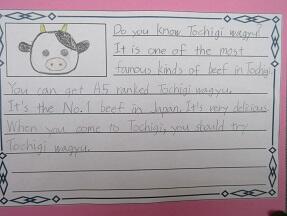 Do you know Tochigi wagyu?
It is one of the most
famous kinds of beef in Tochigi.
You can get A5 ranked Tochigi wagyu.
It's the No.1 beef in Japan. It's very delicious.
When you come to Tochigi, you should try
Tochigi wagyu.